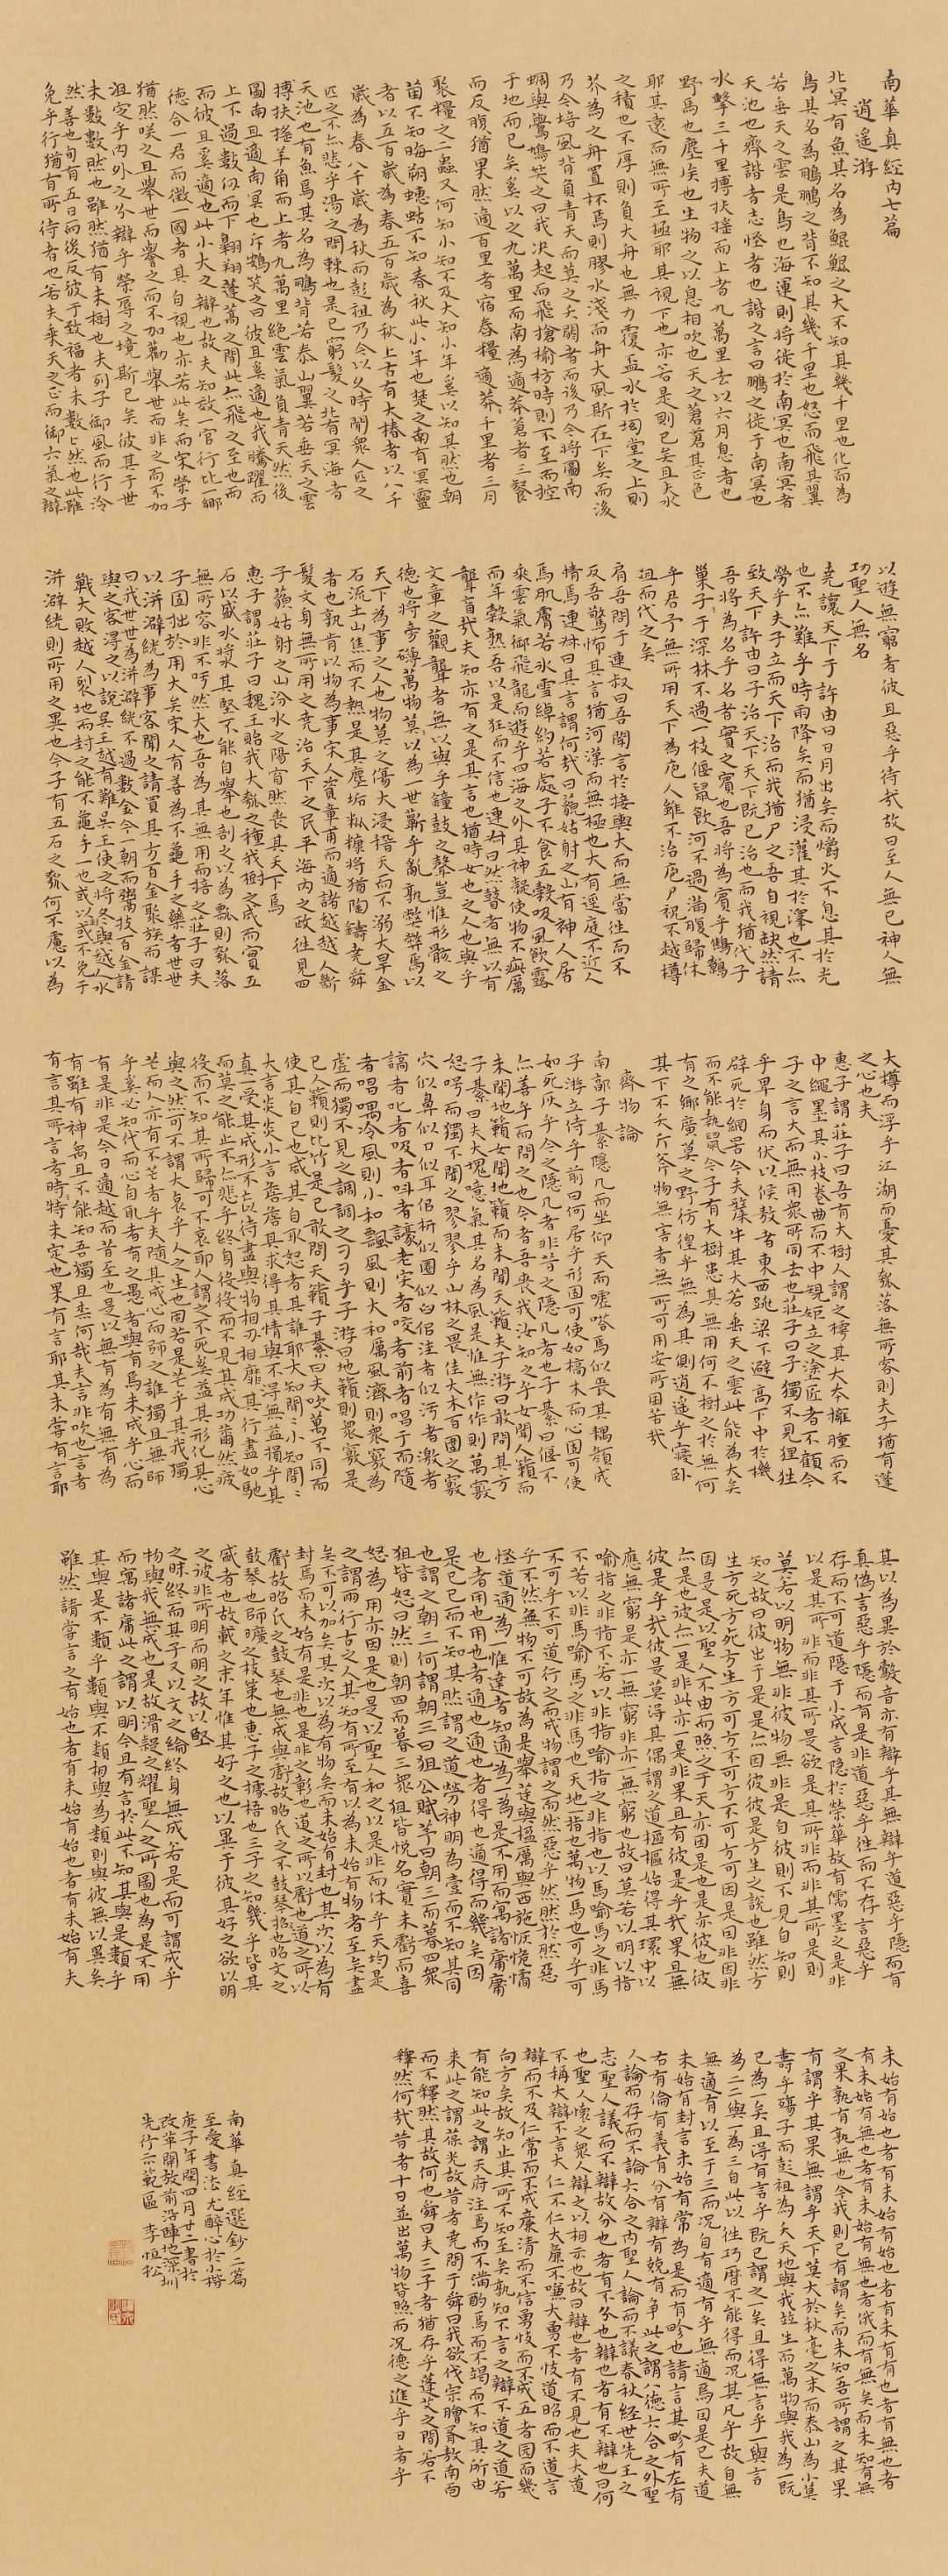 南華真經內七篇
逍遙游
北冥有魚其名為鯤鯤之大不知其幾千里也化而為
鳥其名為鵬鵬之背不知其幾千里也怒而飛其翼
若垂天之雲是鳥也海運則將徙於南冥也南冥者
天池也齊諧者志怪者也諧之言曰鵬之徙于南冥也
水擊三千里搏扶搖而上者九萬里去以六月息者也
野馬也塵埃也生物之以息相吹也天之蒼蒼其正色
耶其遠而無所至極耶其視下也亦若是則已矣且夫水
之積也不厚則負大舟也無力覆盃水於坳堂之上則
芥為之舟置杯焉則膠水淺而舟大風斯在下矣而後
乃今培風背負青天而莫之夭閼者而後乃今將圖南
蜩與鷽鳩笑之曰我決起而飛搶榆枋時則不至而控
于地而已矣奚以之九萬里而南為適莽蒼者三餐
而反腹猶果然適百里者宿舂糧適莽千里者三月
聚糧之二蟲又何知小知不及大知小年奚以知其然也朝
菌不知晦朔蟪蛄不知春秋此小年也楚之南有冥靈
者以五百歲為春五百歲為秋上古有大椿者以八千
歲為春八千歲為秋而彭祖乃今以久時聞眾人匹之
匹之不亦悲乎湯之問棘也是已窮髮之北有冥海者
天池也有魚焉其名為鵬背若泰山翼若垂天之雲
搏扶搖羊角而上者九萬里絕雲氣負青天然後
圖南且適南冥也斥鴳笑之曰彼且奚適也我騰躍而
上不過數仞而下翱翔蓬蒿之間此亦飛之至也而
而彼且奚適也此小大之辯也故夫知效一官行比一鄉
德合一君而徵一國者其自視也亦若此矣而宋榮子
猶然咲之且舉世而譽之而不加勸舉世而非之而不加
沮定乎內外之分辯乎榮辱之境斯已矣彼其于世
未數數然也雖然猶有未樹也夫列子御風而行泠
然善也旬有五日而後反彼于致福者未數數然也此雖
免乎行猶有所待者也若夫乘天之正而御六氣之辯
以遊無窮者彼且惡乎待哉故曰至人無已神人無
功聖人無名
堯讓天下于許由曰日月出矣而爝火不息其於光
也不亦難乎時雨降矣而猶浸灌其於澤也不亦
勞乎夫子立而天下治而我猶尸之吾自視缺然請
致天下許由曰子治天下天下既已治也而我猶代子
吾將為名乎名者實之賓也吾將為賓乎鷦鷯
巢于深林不過一枝偃鼠飲河不過滿腹歸休
乎君予無所用天下為庖人雖不治庖尸祝不越樽
俎而代之矣
肩吾問于連叔曰吾聞言於接輿大而無當往而不
反吾驚怖其言猶河漢而無極也大有逕庭不近人
情焉連叔曰其言謂何哉曰藐姑射之山有神人居
焉肌膚若氷雪綽約若處子不食五穀吸風飲露
乘雲氣御飛龍而遊乎四海之外其神凝使物不疵厲
而年穀熟吾以是狂而不信也連叔曰然瞽者無以
文章之觀聾者無以與乎鐘鼓之聲豈惟形骸之
聾盲哉夫知亦有之是其言也猶時女也之人也與乎
德也將旁礴萬物莫以為一世蘄乎亂孰弊弊焉以
天下為事之人也物莫之傷大浸稽天而不溺大旱金
石流土山焦而不熱是其塵垢粃糠將猶陶鑄堯舜
者也孰肯以物為事宋人資章甫而適諸越越人斷
髮文身無所用之堯治天下之民平海內之政往見四
子藐姑射之山汾水之陽窅然喪其天下焉
惠子謂莊子曰魏王貽我大瓠之種我樹之成而實五
石以盛水漿其堅不能自舉也剖之以為瓢則瓠落
無所容非不呺然大也吾為其無用而掊之莊子曰夫
子固拙於用大矣宋人有善為不龜手之藥者世世
以洴澼絖為事客聞之請買其方百金聚族而謀
曰我世世為洴澼絖不過數金今一朝而鬻技百金請
與之客得之以說吳王越有難吳王使之將冬與越人水
戰大敗越人裂地而封之能不龜手一也或以封或不免于
洴澼絖則所用之異也今子有五石之瓠何不慮以為
大樽而浮乎江湖而憂其瓠落無所容則夫子猶有蓬
之心也夫
惠子謂莊子曰吾有大樹人謂之樗其大本擁腫而不
中繩墨其小枝卷曲而不中規矩立之塗匠者不顧今
子之言大而無用眾所同去也莊子曰子獨不見狸狌
乎卑身而伏以候敖者東西跳梁不避高下中於機
辟死於網罟今夫斄牛其大若垂天之雲此能為大矣
而不能執鼠今子有大樹患其無用何不樹之於無何
有之鄉廣莫之野彷徨乎無為其側逍遥乎寢卧
其下不夭斤斧物無害者無所可用安所困苦哉
齊物論
南郭子綦隱几而坐仰天而噓嗒焉似喪其耦顏成
子游立侍乎前曰何居乎形固可使如槁木而心固可使
如死灰乎今之隱几者非昔之隱几者也子綦曰偃不
亦善乎而問之也今者吾喪我汝知之乎女聞人籟而
未聞地籟女聞地籟而未聞天籟夫子游曰敢問其方
子綦曰夫大塊噫氣其名為風是惟無作作則萬竅
怒呺而獨不聞之翏翏乎山林之畏佳大木百圍之竅
穴似鼻似口似耳似枅似圈似臼似洼者似污者激者
謞者叱者吸者叫者譹者宎者咬者前者唱于而隨
者唱喁泠風則小和飄風則大和厲風濟則眾竅為
虛而獨不見之調調之刁刁乎子游曰地籟則眾竅是
已人籟則比竹是已敢問天籟子綦曰夫吹萬不同而
使其自已也咸其自取怒者其誰耶大知閑閑小知間間
大言炎炎小言詹詹其求得其情與不得無益損乎其
真一受其成形不忘以待盡與物相刃相靡其行盡如馳
而莫之能止不亦悲乎終身役役而不見其成功薾然疲
役而不知其所歸可不哀耶人謂之不死奚益其形化其心
與之然可不謂大哀乎人之生也固若是芒乎其我獨
芒而人亦有不芒者乎夫隨其成心而師之誰獨且無師
乎奚必知代而心自取者有之愚者與有焉未成乎心而
有是非是今日適越而昔至也是以無有為有無有為
有雖有神禹且不能知吾獨且柰何哉夫言非吹也言者
有言其所言者時特未定也果有言耶其未嘗有言耶
其以為異於鷇音亦有辯乎其無辯乎道惡乎隱而有
真偽言惡乎隱而有是非道惡乎往而不存言惡乎
存而不可道隱于小成言隱於榮華故有儒墨之是非
以是其所非而非其所是欲是其所非而非其所是則
莫若以明物無非彼物無非是自彼則不見自知則
知之故曰彼出于是是亦因彼彼是方生之說也雖然方
生方死方死方生方可方不可方不可方可因是因非因非
因是是以聖人不由而照之于天亦因是也是亦彼也彼
亦是也彼亦一是非此亦一是非果且有彼是乎哉果且無
彼是乎哉彼是莫淂其偶謂之道樞樞始得其環中以
應無窮是亦一無窮非亦一無窮也故曰莫若以明以指
喻指之非指不若以非指喻指之非指也以馬喻馬之非馬
不若以非馬喻馬之非馬也天地一指也萬物一馬也可乎可
不可乎不可道行之而成物謂之而然惡乎然然於然惡
乎不然無物不可故為是舉莛與楹厲與西施恢恑憰
怪道通為一惟達者知通為一為是不用而寓諸庸庸
也者用也用也者通也通也者得也適得而幾矣因
是已已而不知其然謂之道勞神明為壹而不知其同
也謂之朝三何謂朝三曰狙公賦芧曰朝三而暮四眾
狙皆怒曰然則朝四而暮三眾狙皆悅名實未虧而喜
怒為用亦因是也是以聖人和之以是非而休乎天均是
之謂兩行古之人其知有所至有以為未始有物者至矣盡
矣不可以加矣其次以為有物矣而未始有封也其次以為有
封焉而未始有是非也是非之彰也道之所以虧也道之所以
虧故昭氏之鼓琴也無成與虧故昭氏之不鼓琴也昭文之
鼓琴也師曠之枝策也惠子之據梧也三子之知幾乎皆其
盛者也故載之末年惟其好之也以異于彼其好之欲以明
之彼非所明而明之故以堅
之昧終而其子又以文之綸終身無成若是而可謂成乎
物與我無成也是故滑疑之耀聖人之所圖也為是不用
而寓諸庸此之謂以明今且有言於此不知其與是類乎
其與是不類乎類與不類相與為類則與彼無以異矣
雖然請嘗言之有始也者有未始有始也者有未始有夫
未始有始也者有未始有始也者有未有有也者有無也者
有未始有無也者有未始有無也者俄而有無矣而未知有無
之果孰有孰無也今我則已有謂矣而未知吾所謂之其果
有謂乎其果無謂乎天下莫大於秋毫之末而泰山為小莫
壽乎殤子而彭祖為夭天地與我並生而萬物與我為一既
已為一矣且得有言乎既已謂之一矣且得無言乎一與言
為二二與一為三自此以往巧曆不能得而況其凡乎故自無
無適有以至于三而況自有適有乎無適焉因是已夫道
未始有封言未始有常為是而有畛也請言其畛有左有
右有倫有義有分有辯有競有爭此之謂八德六合之外聖
人論而存而不論六合之內聖人論而不議春秋經世先王之
志聖人議而不辯故分也者有不分也辯也者有不辯也曰何
也聖人懷之眾人辯之以相示也故曰辯也者有不見也夫大道
不稱大辯不言大仁不仁大廉不嗛大勇不忮道昭而不道言
辯而不及仁常而不成廉清而不信勇忮而不成五者园而幾
向方矣故知止其所不知至矣孰知不言之辯不道之道若
有能知此之謂天府注焉而不滿酌焉而不竭而不知其所由
来此之謂葆光故昔者堯問于舜曰我欲伐宗膾胥敖南面
而不釋然其故何也舜曰夫三子者猶存乎蓬艾之間若不
釋然何哉昔者十日並出萬物皆照而況德之進乎日者乎
南華真經選鈔二篇
至愛書法尤醉心於小楷
庚子年閏四月廿二書於
改革開放前沿陣地深圳
先行示範區 李恒松